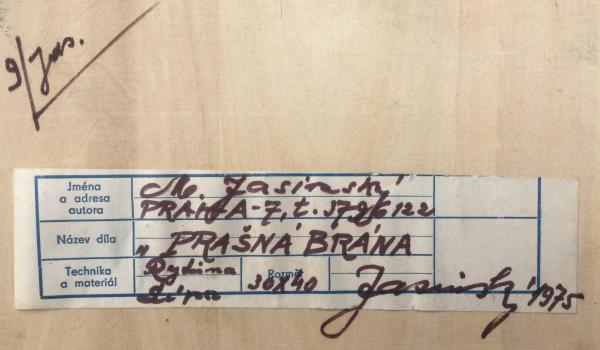 9/Jas.
Jména a adresa autora M. Jasinský
PRAHA-7, t. 3796122
Název díla „PRAŠNÁ BRÁNA
Technika a materiál Rytina Rozměr 30X40
Lípa Jasinský 1975